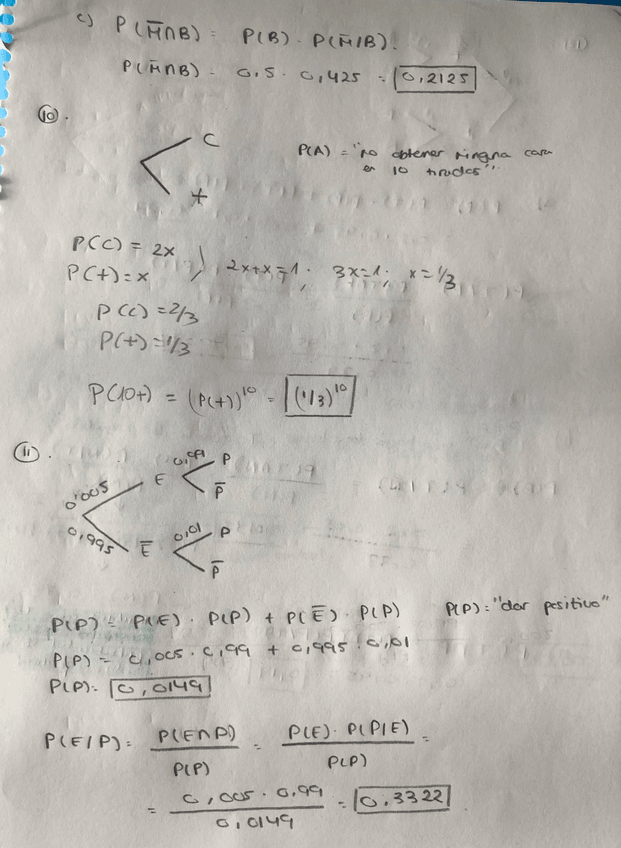 c) P(M̄∩B) = P(B) · P(M̄/B).
P(M̄∩B) = 0,5 · 0,425 = 0,2125
10.
C
+
P(A) = "no obtener ningna cara
en 10 tiradas".
P(C) = 2x
P(+) = x
2x+x=1; 3x=1; x=1/3
P(C) = 2/3
P(+) = 1/3
P(10+) = (P(+))^10 = (1/3)^10
11.
0'005 E 0,99 P
P̄
0,995 Ē 0,01 P
P̄
P(P) = P(E) · P(P) + P(Ē) · P(P) P(P) = "dar positivo"
P(P) = 0,005 · 0,99 + 0,995 · 0,01
P(P) = 0,0149
P(E/P) = P(E∩P) / P(P) = P(E) · P(P/E) / P(P) =
= 0,005 · 0,99 / 0,0149 = 0,3322